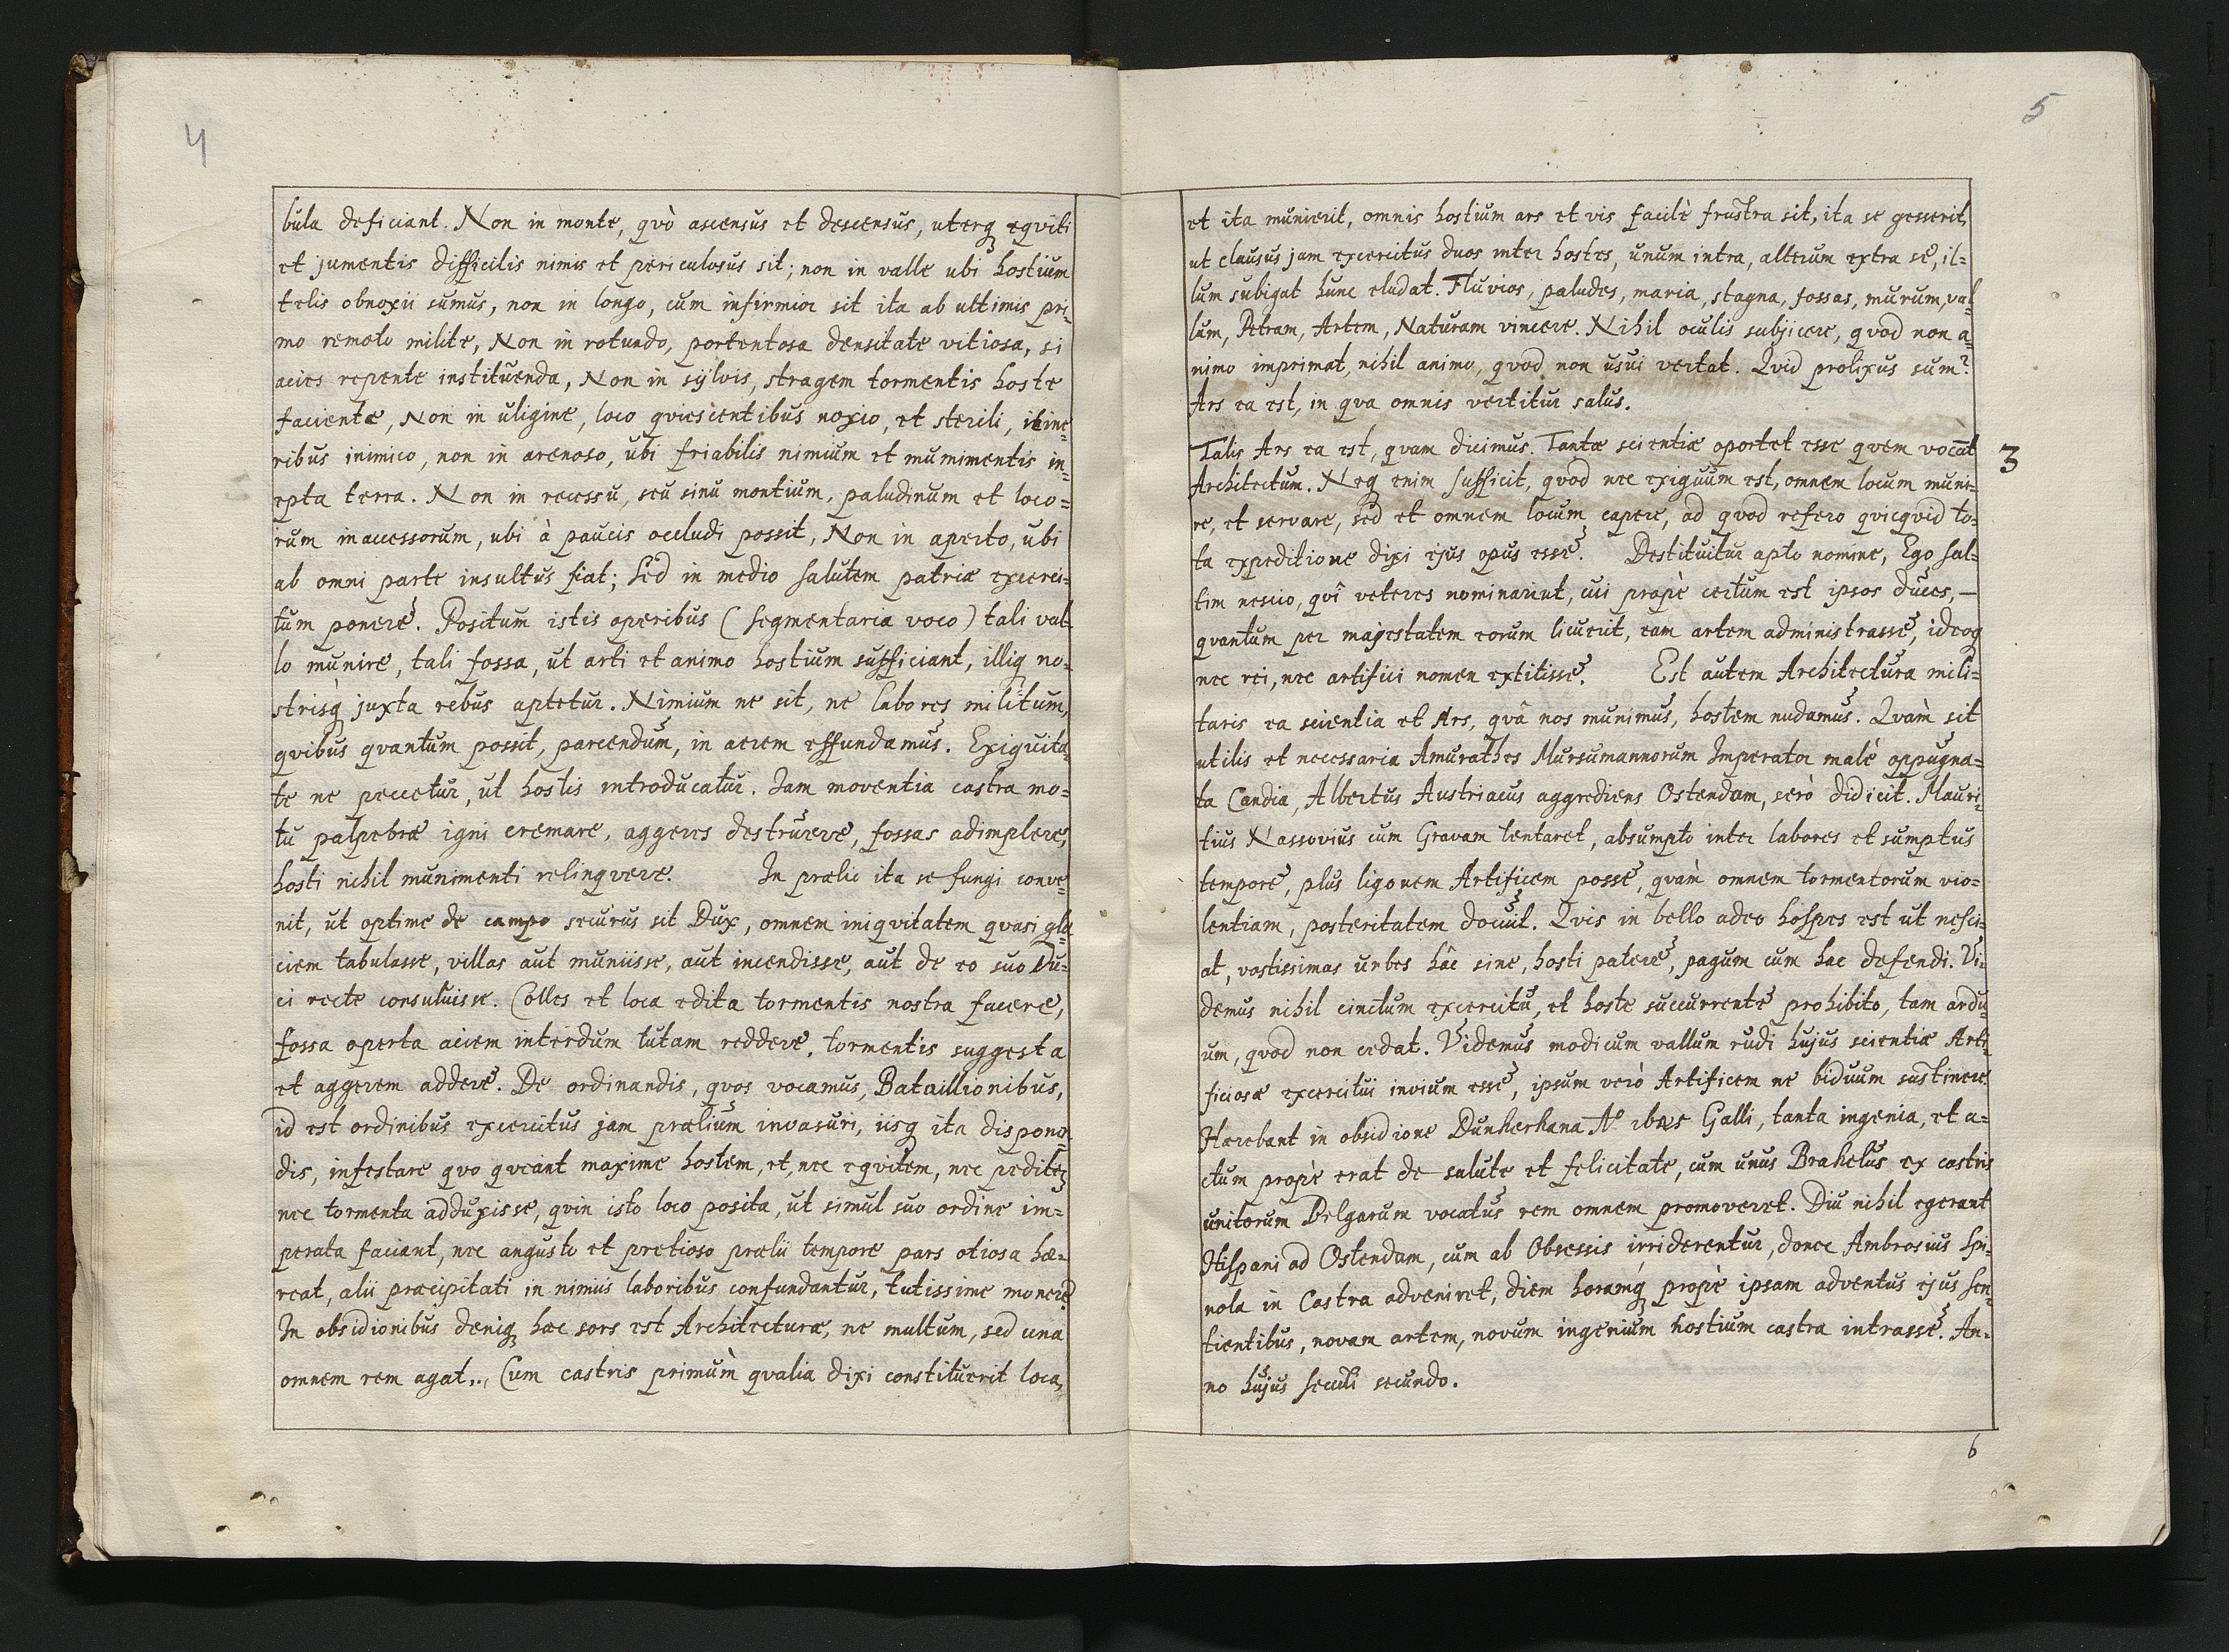 4
bula deficiant. Non in monte, qvò ascensus et descensus, uterq eqviti
et jumentis difficilis nimis et periculosus sit; non in valle ubi hostium
telis obnoxii sumus, non in longo, cum infirmior sit ita ab ultimis pri-
mo remoto milite, Non in rotundo, portentosa densitate vitiosa, si
acies repente instituenda, Non in sylvis, stragem tormentis hoste
faciente, Non in uligine, loco qviescentibus noxio, et sterili, itine-
ribus inimico, non in arenoso, ubi friabilis nimium et munimentis in-
epta terra. Non in recessu, seu sinu montium, paludinum et loco=
rum inaccessorum, ubi à paucis occludi possit, Non in aperto, ubi
ab omni parte insultus fiat; sed in medio salutem patriæ exerci-
tum ponere. Positum istis operibus (segmentaria voco) tali val-
lo munire, tali fossa, ut arti et animo hostium sufficiant, illiq no-
strisq juxta rebus aptetur. Nimium ne sit, ne labores militum,
qvibus qvantum possit, parcendum, in aerem effundamus. Exiguita-
te ne peccetur, ut hostis introducatur. Jam moventia castra mo=
tu palpebræ igni cremare, aggeres destruere, fossas adimplere,
hosti nihil munimenti relinqvere. In prælio ita se fungi conve-
nit, ut optime de campo securus sit Dux, omnem iniqvitatem qvasi gla
ciem tabulasse, villas aut muniisse, aut incendisse, aut de eo suo Du-
ci recte consuluisse. Colles et loca edita tormentis nostra facere,
fossa operta aciem interdum tutam reddere, tormentis suggesta
et aggerem addere. De ordinandis, qvos vocamus, Bataillionibus,
id est ordinibus exercitus jam prælium invasuri, iisq ita dispone-
dis, infestare qvo qveant maxime hostem, et, nec eqvitem, nec pedite,
nec tormenta adduxisse, qvin isto loco posita, ut simul suo ordine im=
perata faciant, nec angusto et pretioso prælii tempore pars otiosa hæ-
reat, alii præcipitati in nimiis laboribus confundantur, tutissime monere
In obsidionibus deniq hæc sors est Architecturæ, ne multum, sed una
omnem rem agat. Cum castris primùm qvalia dixi constituerit loca,
5
et ita munierit, omnis hostium ars et vis facilè frustra sit, ita se gesserit,
ut clausus jam exercitus duos inter hostes, unum intra, alterum extra se, il=
lum subigat hunc eludat. Fluvios, paludes, maria, stagna, fossas, murum, val-
lum, Petram, Artem, Naturam vincere. Nihil oculis subjicere, qvod non a-
nimo imprimat, nihil animo, qvod non usui vertat. Qvid prolixus sum?
Ars ea est, in qva omnis vertitur salus.
Talis Ars ea est, qvam dicimus. Tantæ scientiæ oportet esse qvem vocat
3
Architectum. Neq enim sufficit, qvod nec exiguum est, omnem locum muni-
re, et servare, sed et omnem locum capere, ad qvod refero qvicqvid to-
ta expeditione dixi ejus opus esse. Destituitur apto nomine, Ego sal-
tim nescio, qvî veteres nominarint, cui propè certum est ipsos duces,
qvantum per majestatem eorum licuerit, eam artem administrasse, ideoq
nec rei, nec artifici nomen extitisse. Est autem Architectura mili=
taris ea scientia et Ars, qvâ nos munimus, hostem nudamus. Qvàm sit
utilis et necessaria Amurathes Mursumannorum Imperator malè oppugna=
ta Candia, Albertus Austriacus aggrediens Ostendam, serò didicit. Mauri-
tius Nassovius cum Gravam tentaret, absumpto inter labores et sumptus
tempore, plus ligonem Artificem posse, qvàm omnem tormentorum vio=
lentiam, posteritatem docuit. Qvis in bello adeo hospes est ut nesci-
at, vastissimas urbes hâc sine, hosti patere, pagum cum hac defendi. Vi-
demus nihil cinctum exercitu, et hoste succurrente prohibito, tam ardu-
um, qvod non cedat. Videmus modicum vallum rudi hujus scientiæ Arti-
ficiosæ exercitui invium esse, ipsum verò Artificem ne biduum sustinere
Hærebant in obsidione Dunkerkana Aº Galli, tanta ingenia, et a=
ctum propè erat de salute et felicitate, cum unus Brahelus ex castris
unitorum Belgarum vocatus rem omnem promoveret. Diu nihil egerant
Hispani ad Ostendam, cum ab Obsessis irriderentur, donec Ambrosius Spi-
nola in Castra adveniret, diem horamq propè ipsam adventus ejus sen-
tientibus, novam artem, novum ingenium hostium castra intrasse. An-
no hujus seculi secundo.
6